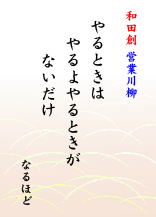 和田創 営業川柳
やるときは
やるよやるときが
ないだけ
なるほど